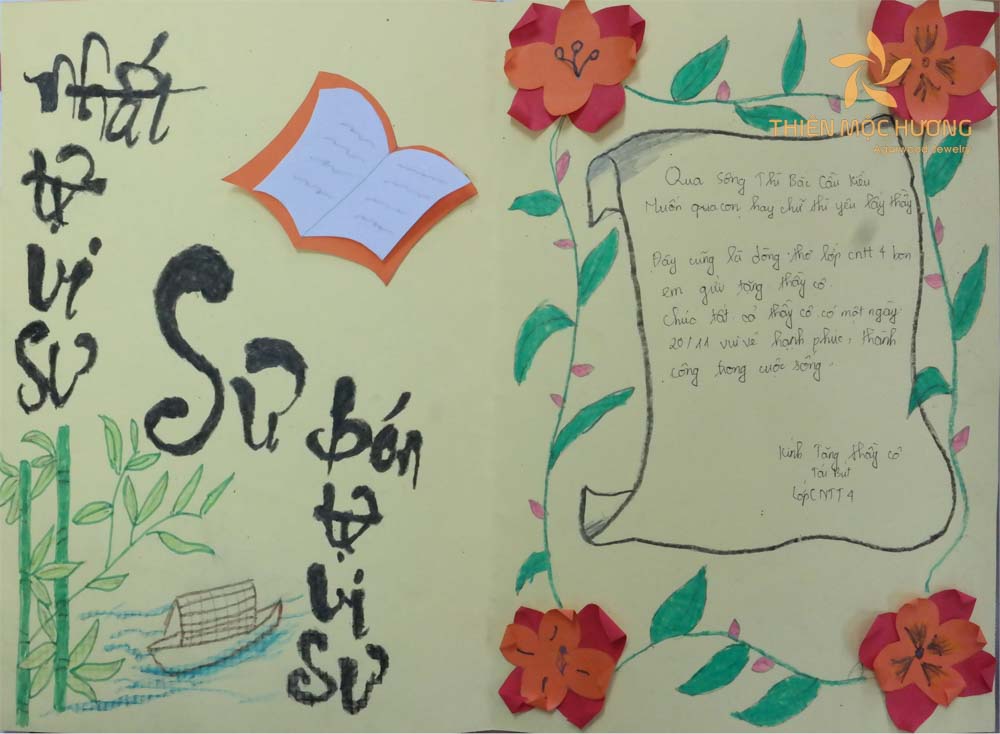 nhất
tự
vị
sư
Sư
bón
tự
vị
sư
THIÊN MỘC HƯƠNG
Agarwood Jewelry
Qua Sông Thì Bắc Cầu Kiều
Muốn qua con hay chữ thì yêu lấy thầy
Đây cũng là dòng thơ lớp cntt 4 bọn
em gửi tặng thầy cô.
Chúc tất cả thầy cô có một ngày
20/11 vui vẻ hạnh phúc, thành
công trong cuộc sống.
Kính Tặng thầy cô
Lớp CNTT4